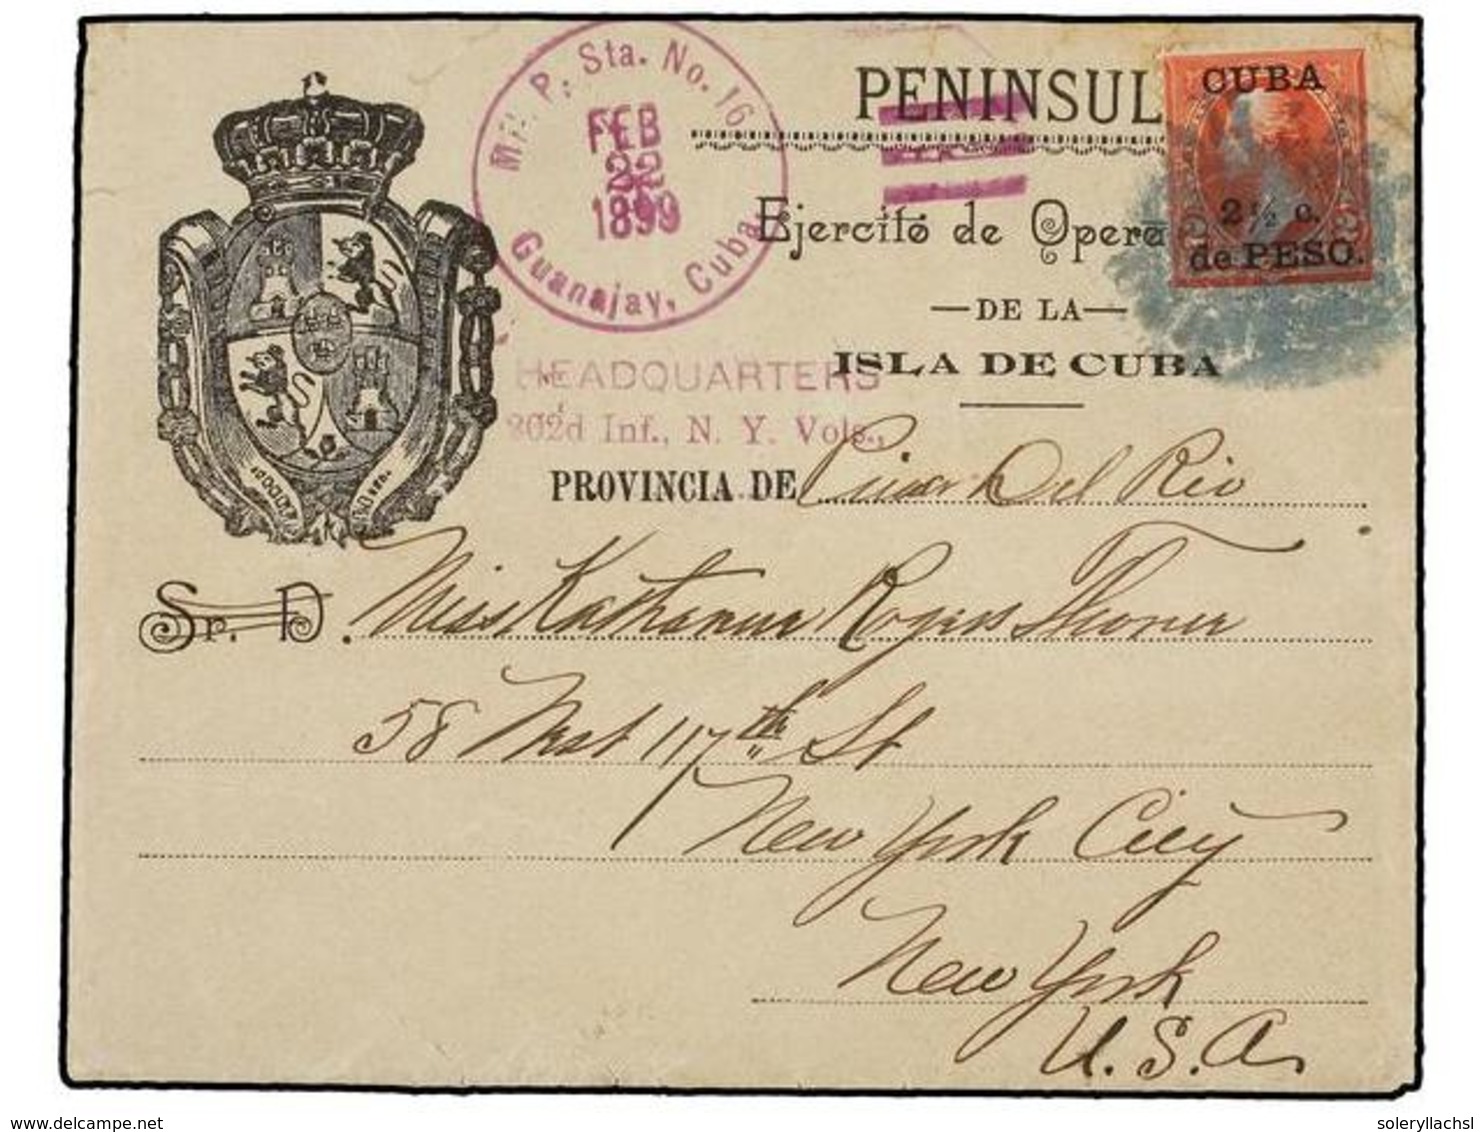 Mil. P. Sta. No. 16
FEB
22
1899
Guanajay, Cuba.
PENINSUL
Ejercito de Opera
—DE LA—
ISLA DE CUBA
CUBA
2 ½ c.
de PESO.
HEADQUARTERS
202d Inf., N. Y. Vols.,
PROVINCIA DE Pinar Del Rio
Sr. D. Miss Katharine Rogers
58 West 117th St
New York City
New York
U.S.A.
soleryllachsl